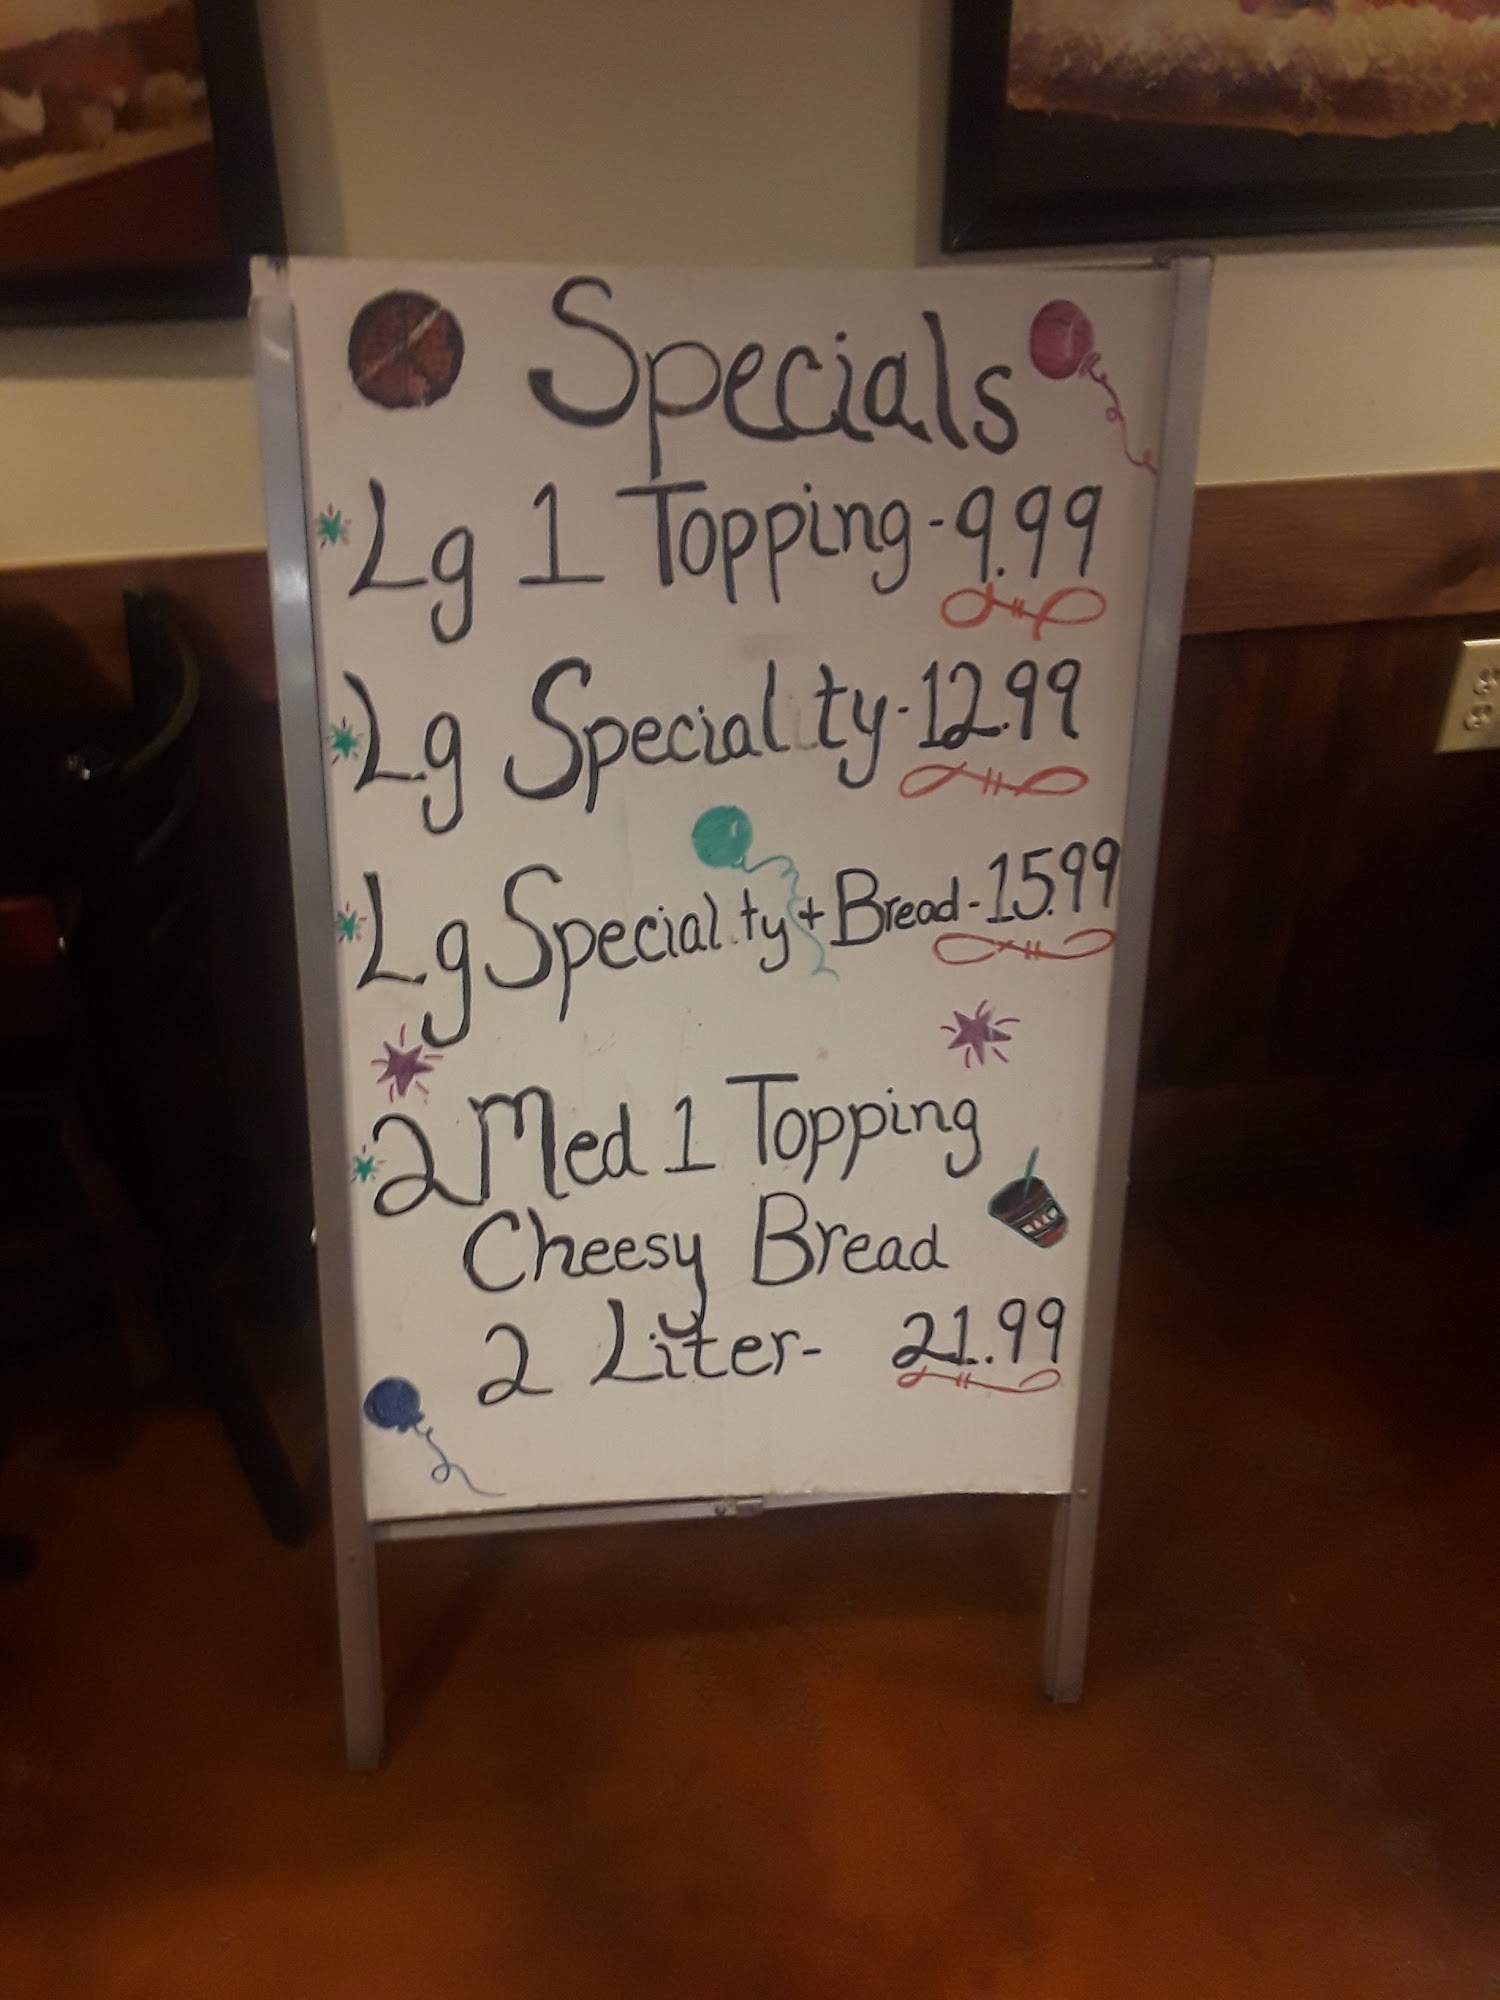 Specials
Lg 1 Topping - 9.99
Lg Speciality - 12.99
Lg Speciality + Bread - 15.99
2 Med 1 Topping
Cheesy Bread
2 Liter - 21.99